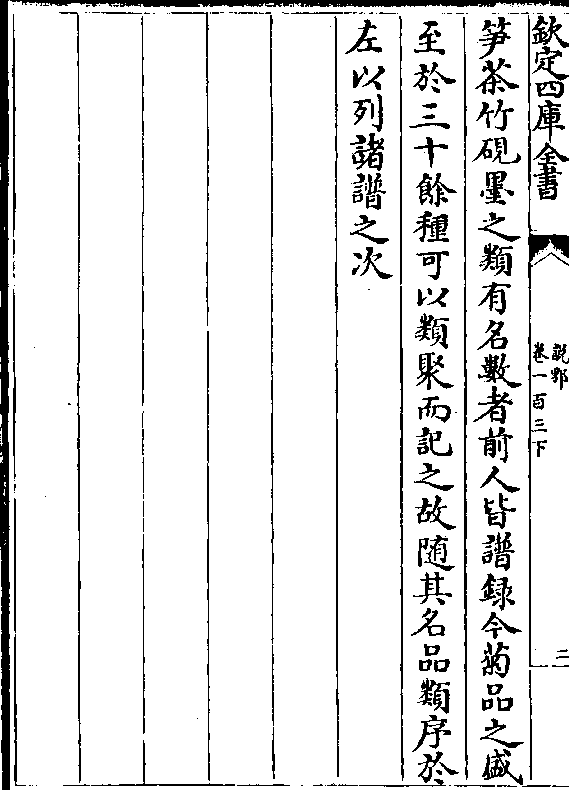 欽定四庫全書
說郛
卷一百三下
二
笋茶竹硯墨之類有名數者前人皆譜録今菊品之盛
至於三十餘種可以類聚而記之故随其名品類序於
左以列諸譜之次